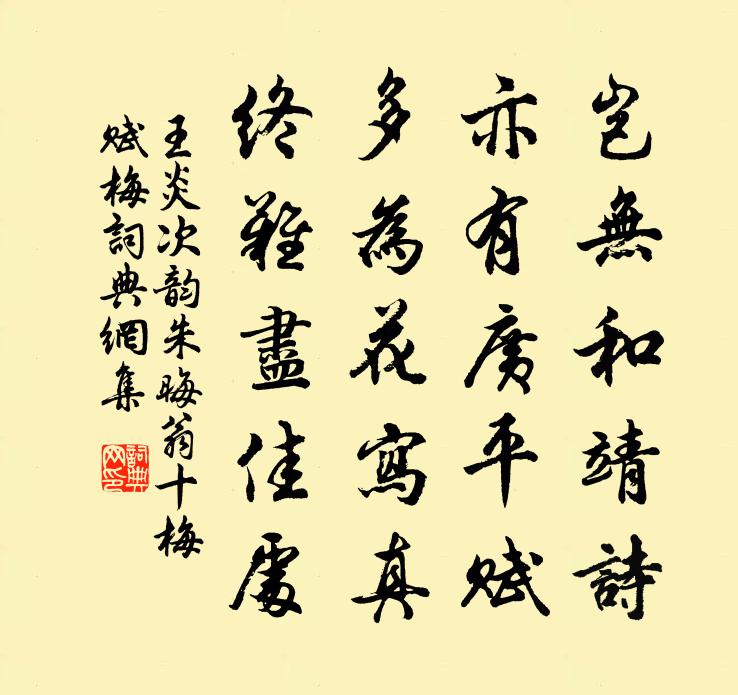 豈無和靖詩
亦有廣平賦
多為花寫真
終難盡佳處
王炎次韵朱晦翁十梅
赋梅詞典網集
詞典网印